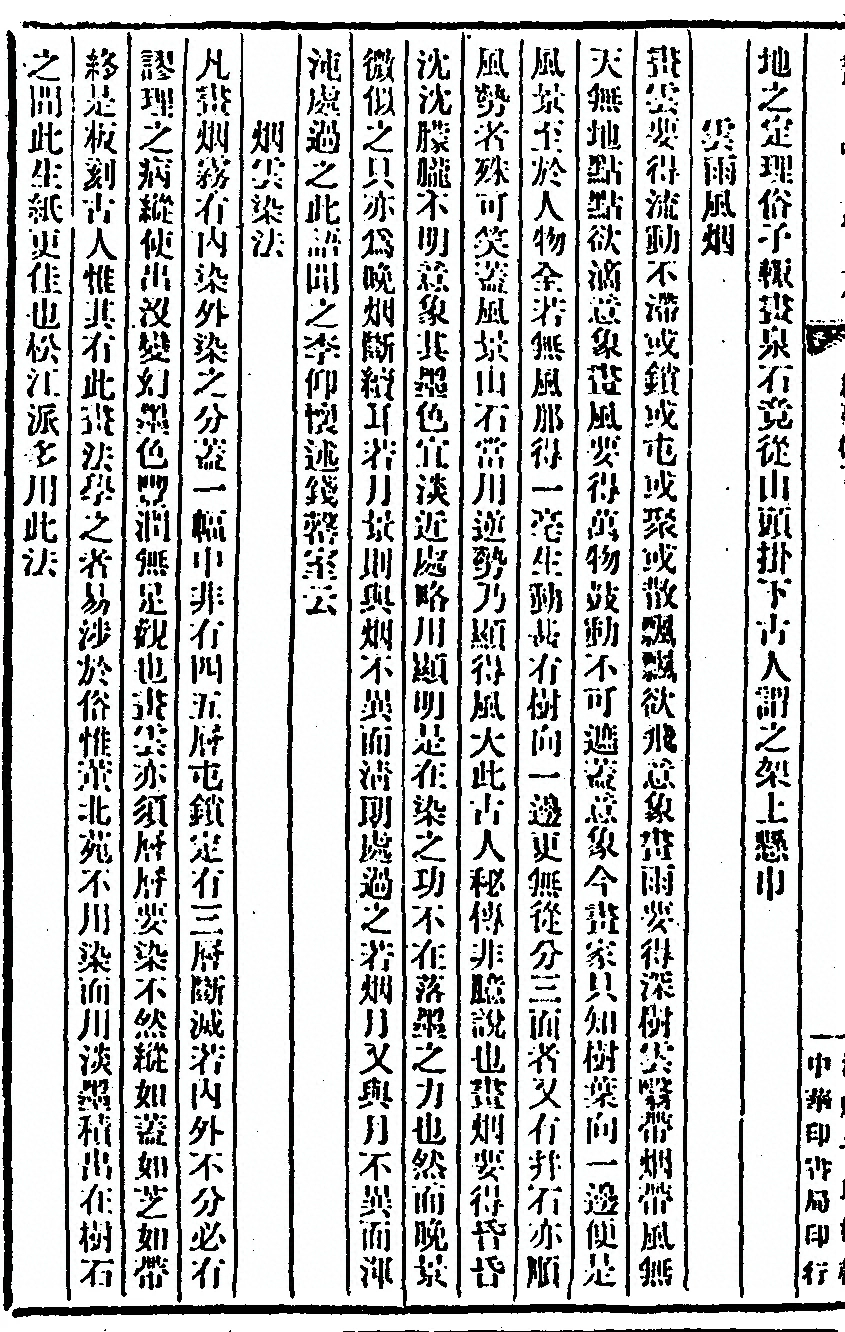 地之定理俗子輙畫泉石竟從山頭掛下古人謂之架上懸巾
雲雨風烟
畫雲要得流動不滯或鎖或屯或聚或散飄飄欲飛意象畫雨要得深樹雲翳帶烟帶風無
天無地點點欲滴意象畫風要得萬物鼓動不可遮蓋意象今畫家只知樹葉向一邊便是
風景至於人物全若無風那得一毫生動甚有樹向一邊更無從分三面者又有井石亦順
風勢者殊可笑蓋風景山石當用逆勢乃顯得風大此古人秘傳非臆說也畫烟要得昏昏
沈沈朦朧不明意象其墨色宜淡近處略用顯明是在染之功不在落墨之力也然而晚景
微似之只亦爲晚烟斷續耳若月景則與烟不異而淸朗處過之若烟月又與月不異而渾
沌處過之此語聞之李仰懷述錢罄室云
烟雲染法
凡畫烟霧有內染外染之分蓋一幅中非有四五層屯鎖定有三層斷滅若內外不分必有
謬理之病縱使出沒變幻墨色豐潤無足觀也畫雲亦須層層要染不然縱如蓋如芝如帶
終是板刻古人惟其有此畫法學之者易涉於俗惟董北苑不用染而用淡墨積出在樹石
之間此生紙更佳也松江派多用此法
中華印書局印行